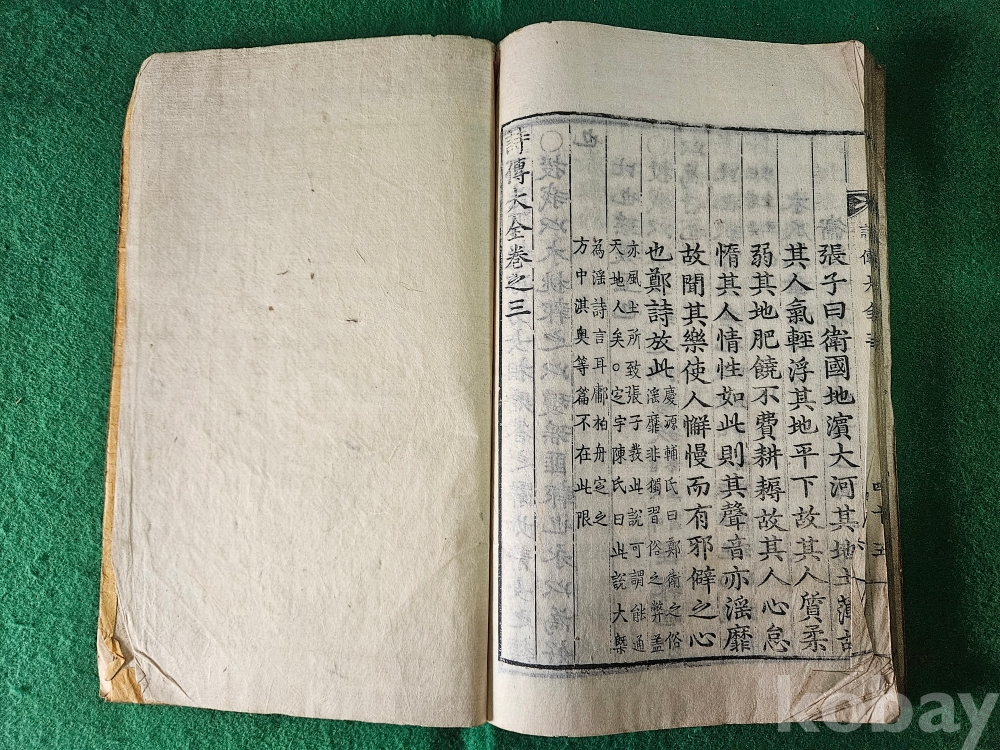 詩傳大全
四十五
張子曰衛國地濱大河其地土薄故
其人氣輕浮其地平下故其人質柔
弱其地肥饒不費耕耨故其人心怠
惰其人情性如此則其聲音亦淫靡
故聞其樂使人懈慢而有邪僻之心
也鄭詩放此
慶源輔氏曰鄭衛之俗
淫靡非獨習俗之弊盖
亦風土所致張子發此說可謂能通
天地人矣○定宇陳氏曰此說大槩
為淫詩言耳鄘柏舟定之
方中淇奥等篇不在此限
詩傳大全卷之三
kobay